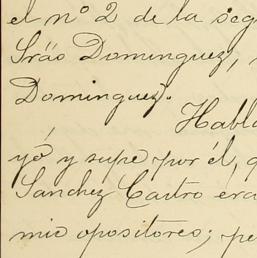 el nº 2 de la seg
Sräs Dominguez,
Dominguez.
Habla
yó y supe por él, q
Sanchez Castro era
mis opositores; pe